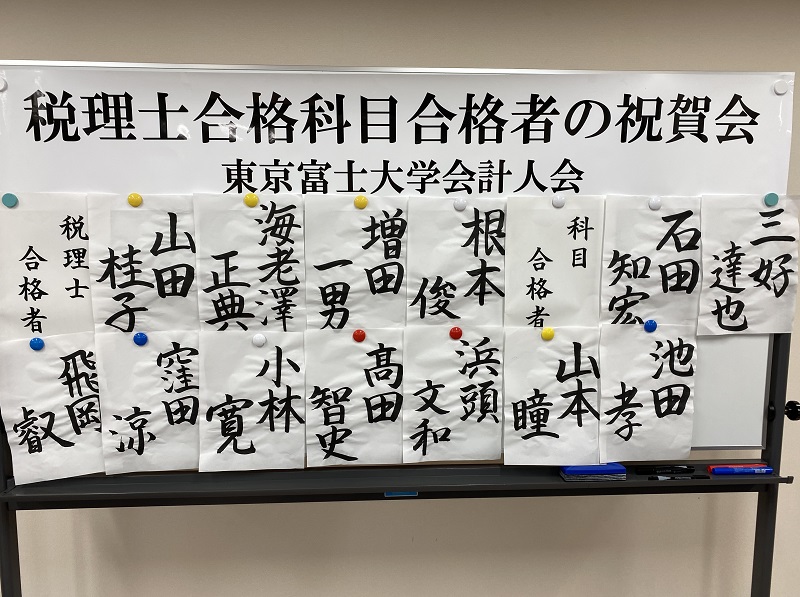 税理士合格科目合格者の祝賀会
東京富士大学会計人会
税理士
合格者
山田
桂子
海老澤
正典
増田
一男
根本
俊
科目
合格者
石田
知宏
三好
達也
飛岡
叡
窪田
涼
小林
寛
髙田
智史
浜頭
文和
山本
瞳
池田
孝